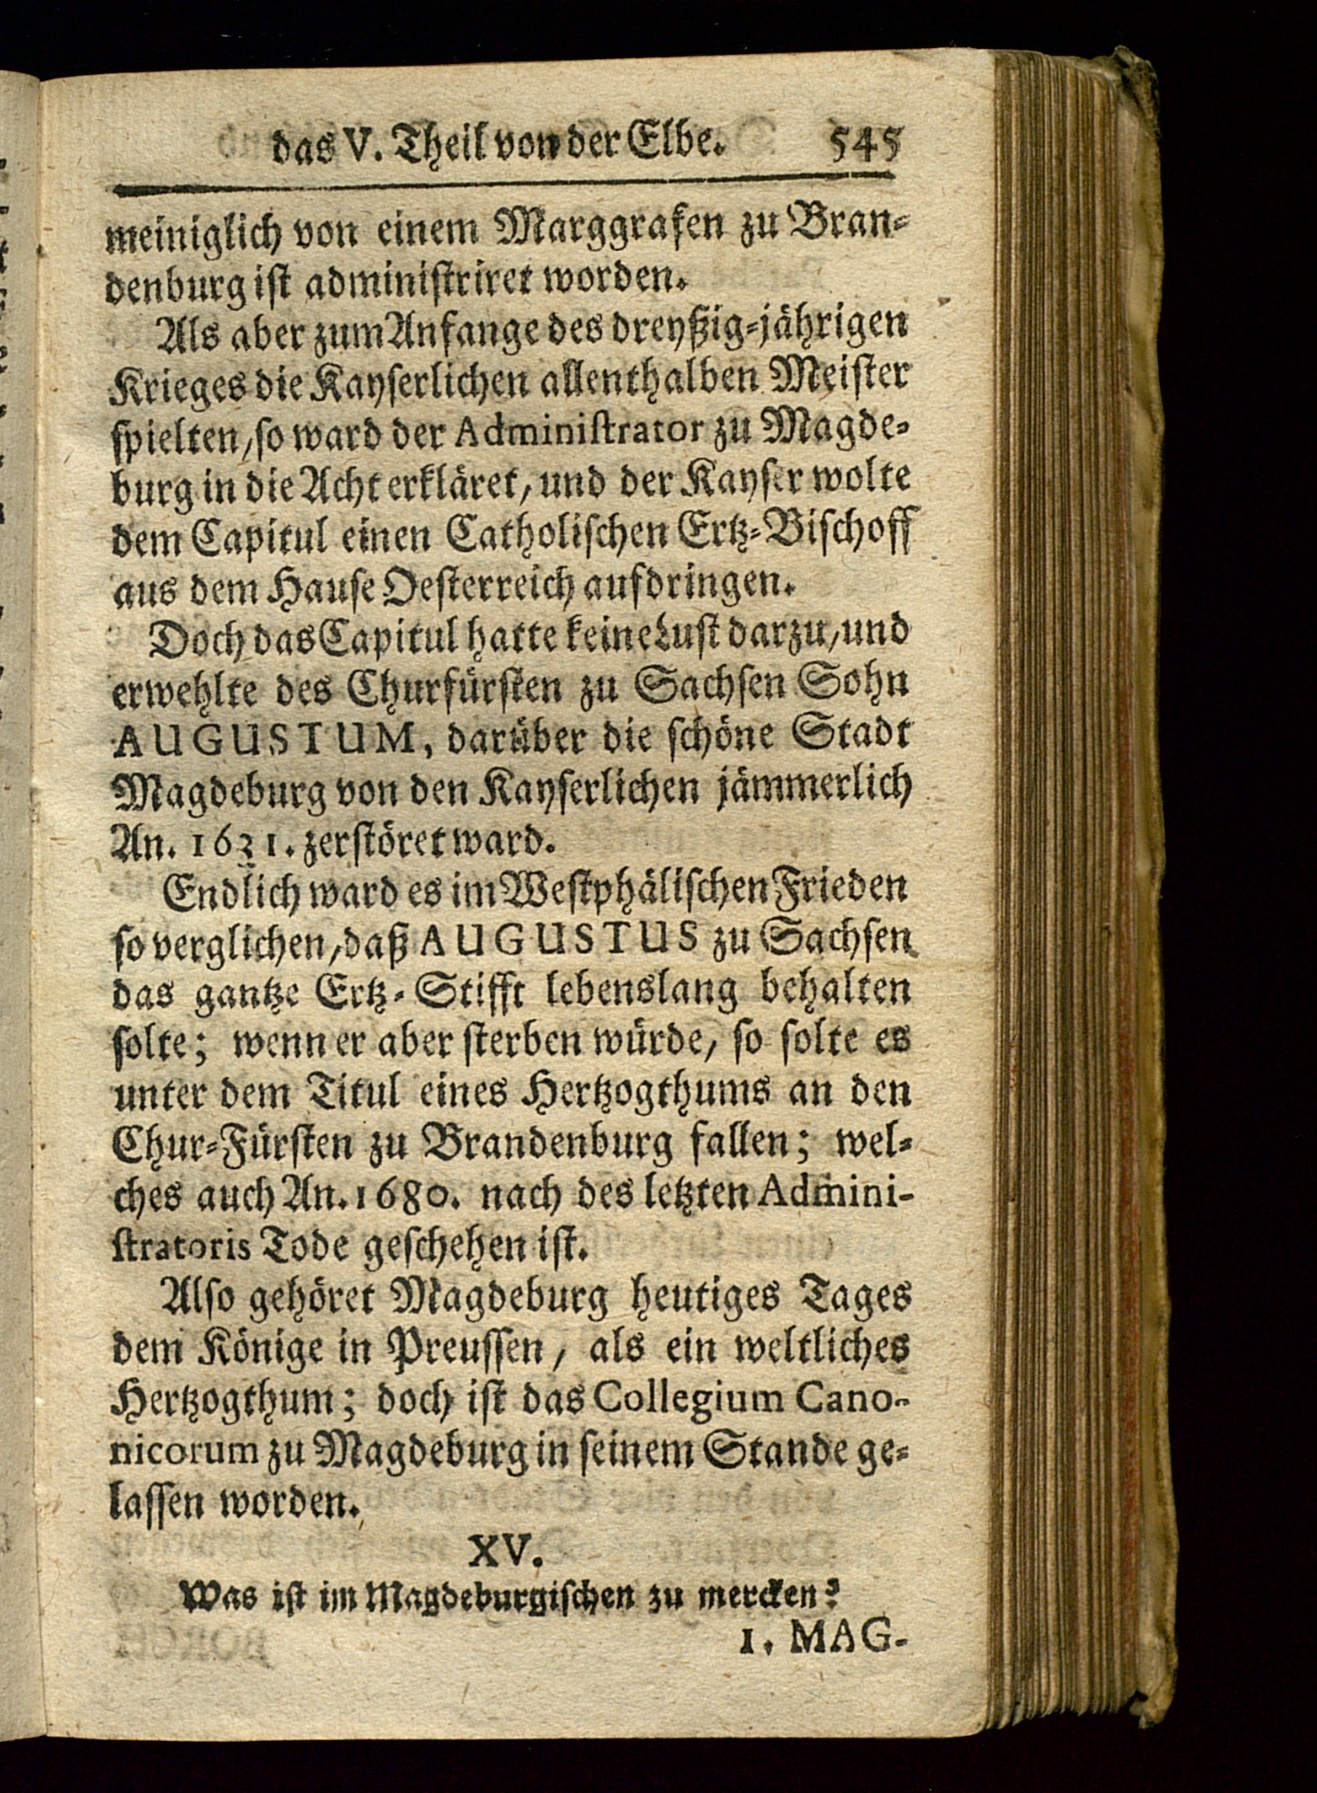 das V. Theil von der Elbe. 545
meiniglich von einem Marggrafen zu Bran-
denburg ist administriret worden.
Als aber zum Anfange des dreyßig-jährigen
Krieges die Kayserlichen allenthalben Meister
spielten, so ward der Administrator zu Magde-
burg in die Acht erkläret, und der Kayser wolte
dem Capitul einen Catholischen Ertz-Bischoff
aus dem Hause Oesterreich aufdringen.
Doch das Capitul hatte keine Lust darzu, und
erwehlte des Churfürsten zu Sachsen Sohn
AUGUSTUM, darüber die schöne Stadt
Magdeburg von den Kayserlichen jämmerlich
An. 1631. zerstöret ward.
Endlich ward es im Westphälischen Frieden
so verglichen, daß AUGUSTUS zu Sachsen
das gantze Ertz-Stifft lebenslang behalten
solte; wenn er aber sterben würde, so solte es
unter dem Titul eines Hertzogthums an den
Chur-Fürsten zu Brandenburg fallen; wel-
ches auch An. 1680. nach des letzten Admini-
stratoris Tode geschehen ist.
Also gehöret Magdeburg heutiges Tages
dem Könige in Preussen, als ein weltliches
Hertzogthum; doch ist das Collegium Cano-
nicorum zu Magdeburg in seinem Stande ge-
lassen worden.
XV.
Was ist im Magdeburgischen zu mercken?
1. MAG-